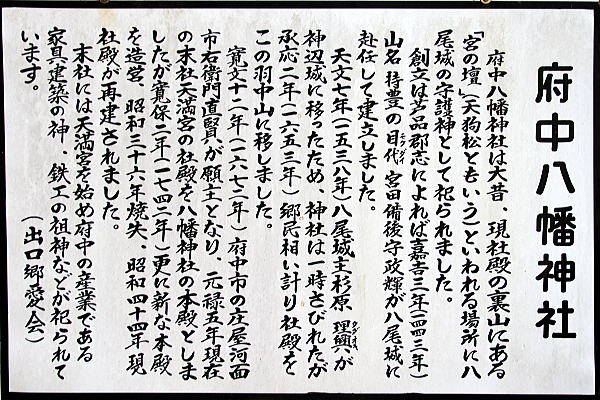 府中八幡神社
府中八幡神社は大昔、現社殿の裏山にある
「宮の壇」（天狗松ともいう）といわれる場所に八
尾城の守護神として祀られました。
創立は芦品郡志によれば嘉吉三年（一四四三年）
山名持豊の目代宮田備後守政輝が八尾城に
赴任して建立しました。
天文七年（一五三八年）八尾城主杉原理興が
神辺城に移ったため神社は一時さびれたが
承応二年（一六五三年）郷民相い計り社殿を
この羽中山に移しました。
寛文十二年（一六七二年）府中市の庄屋河面
市右衛門直賢が願主となり、元禄五年現在
の末社天満宮の社殿を八幡神社の本殿としま
したが寛保二年（一七四二年）更に新な本殿
を造営、昭和三十六年焼失、昭和四十四年現
社殿が再建されました。
末社には天満宮を始め府中の産業である
家具建築の神、鉄工の祖神などが祀られて
います。
（出口郷愛会）